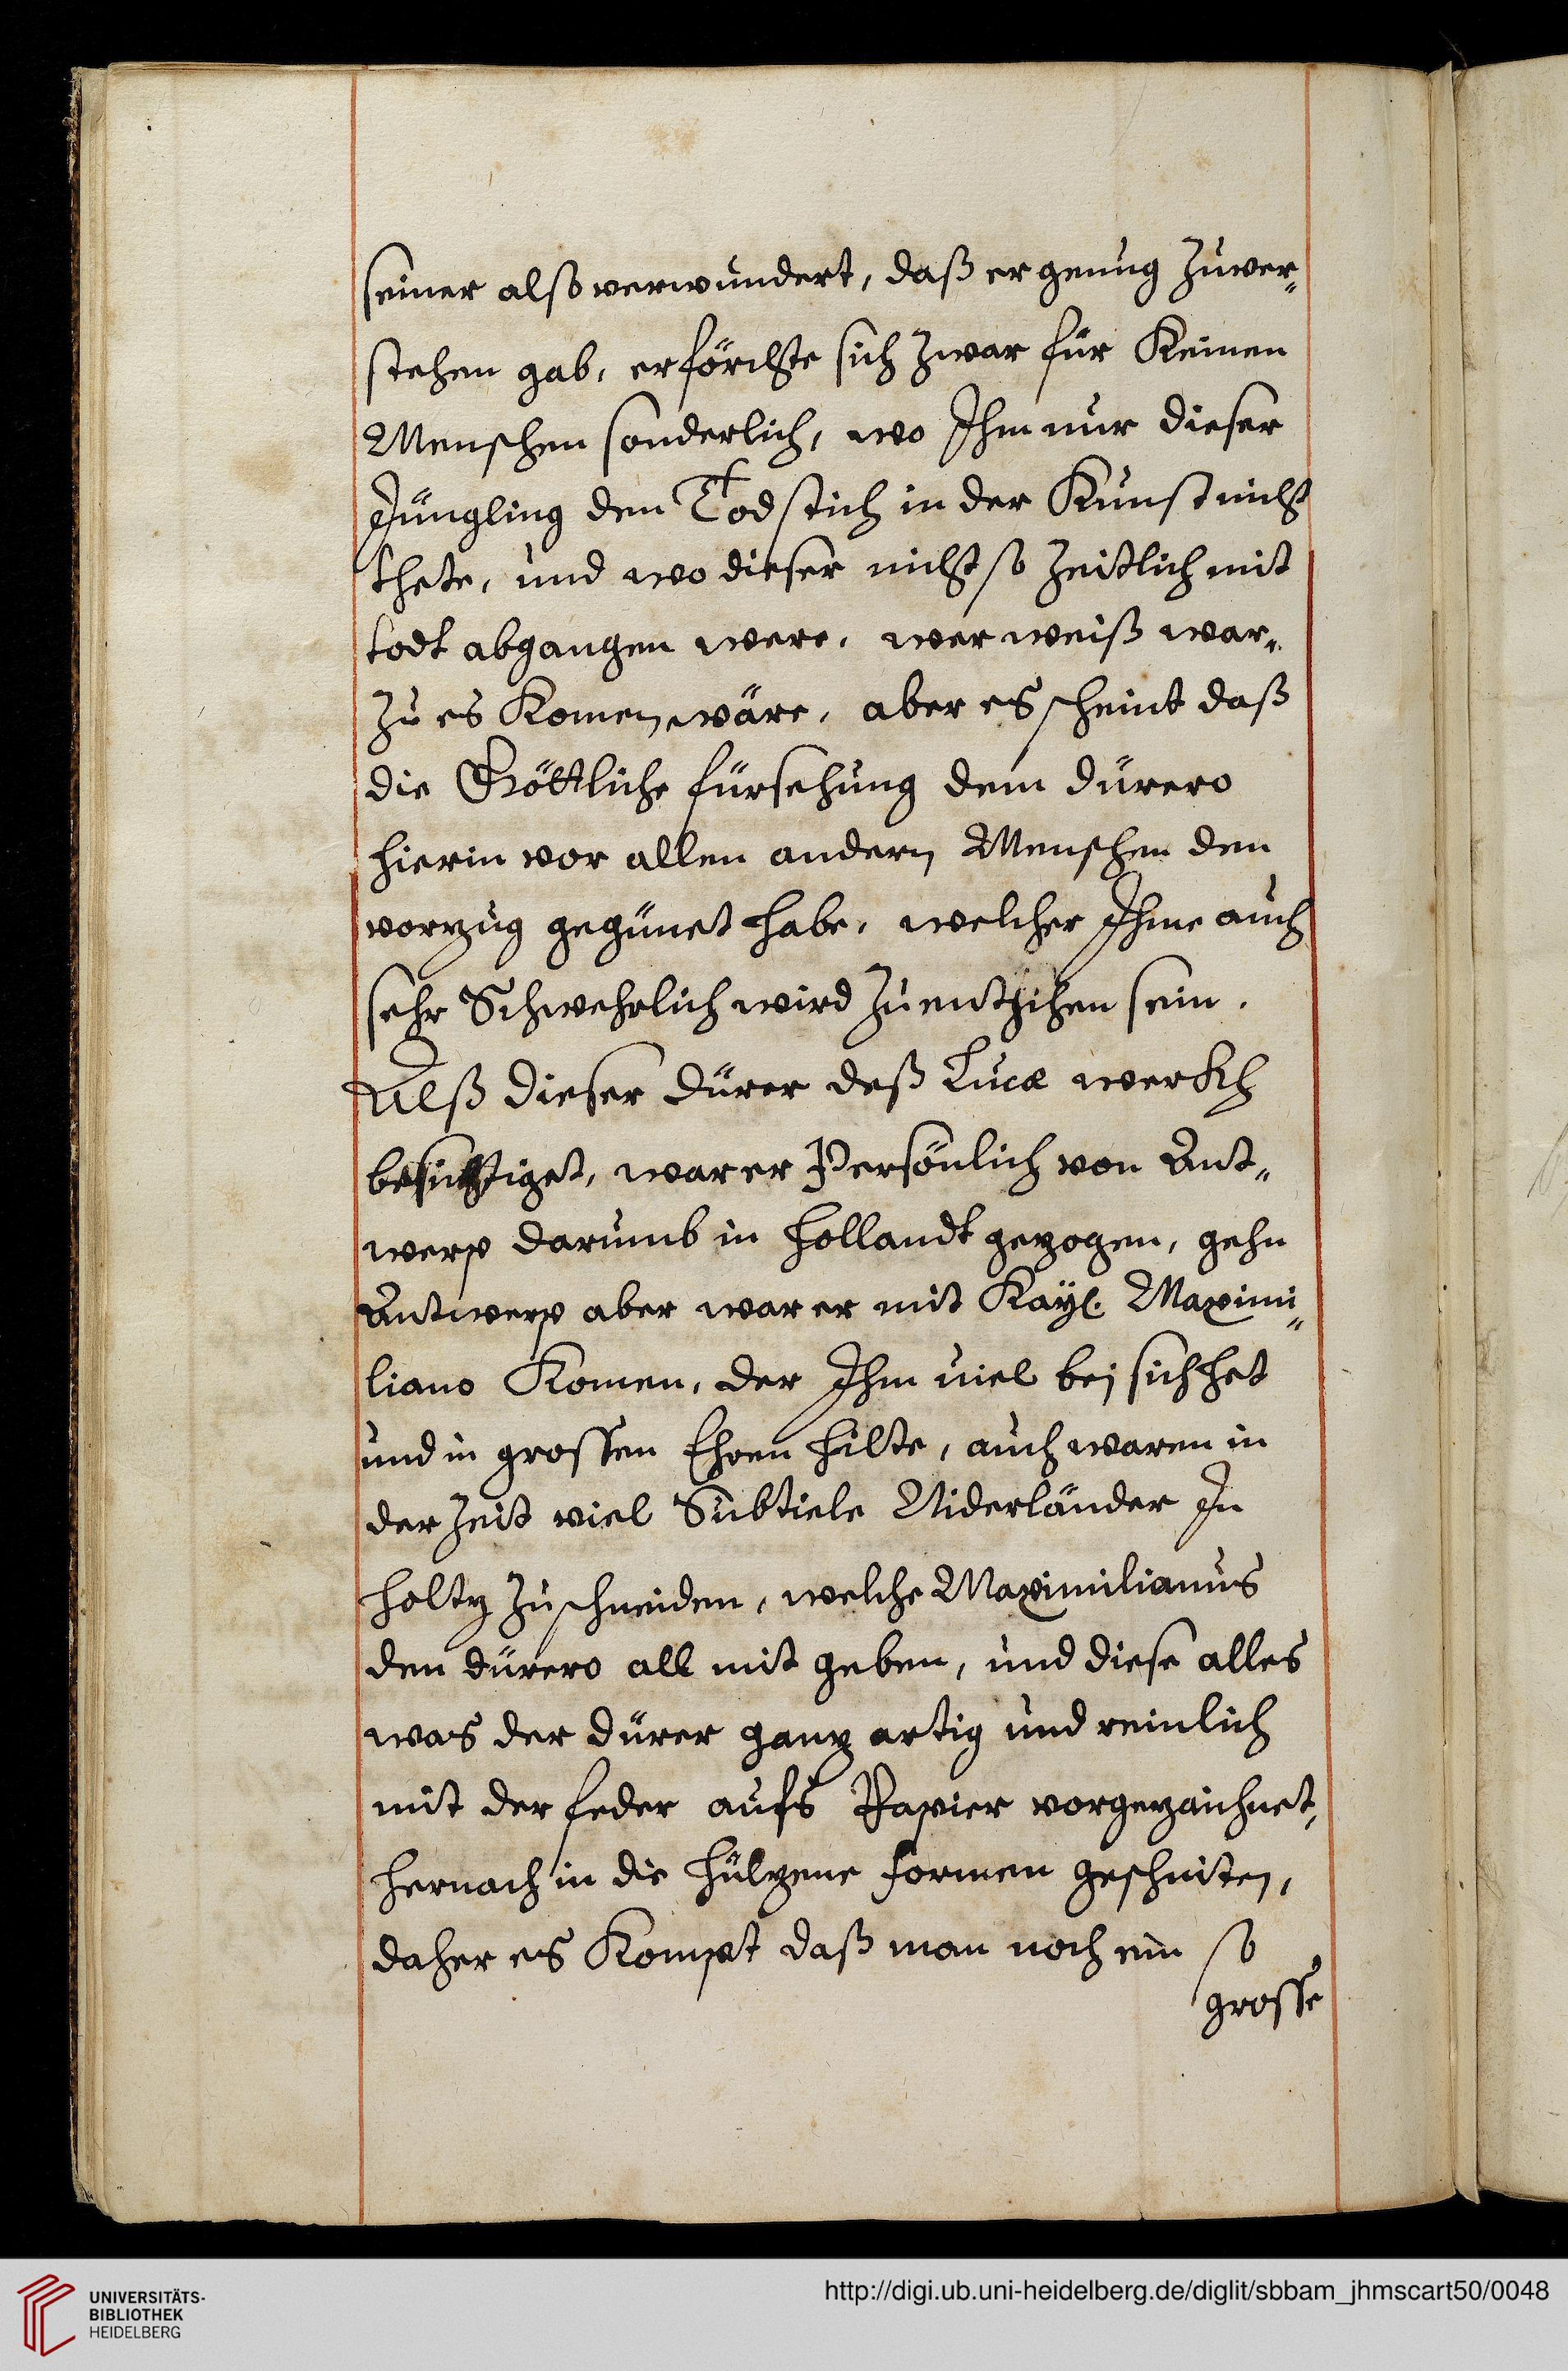 seiner also verwundert, daß er genug zuver„
stehen gab, er förchte sich zwar für Keinen
Menschen sonderlich, wo Ihm nur dieser
Jüngling den Todstich in der Kunst nicht
thete, und wo dieser nicht so zeitlich mit
todt abgangen were, wer weiß war„
zu es Komen wäre, aber es scheint daß
die Göttliche fürsehung dem dürero
hierin vor allen andern Menschen den
vorzug gegünet habe, welcher Ihme auch
sehr Schwehrlich wird zu entzihen sein.
Alß dieser dürer deß Lucæ werkh
besichtiget, war er Persönlich von Ant„
werp darumb in hollandt gezogen, gehn
Antwerp aber war er mit Kayſ. Maximi„
liano Komen, der Ihm viel bej sich het
und in grossen Ehren hilte, auch waren in
der Zeit viel Subtiele Niderländer In
holtz zuschneiden, welche Maximilianus
den dürero all mit geben, und diese alles
was der dürer ganz artig und reinlich
mit der feder aufs Papier vorgezaichnet,
hernach in die hülzene formen geschniten,
daher es Kompt daß man noch ein so
grosse
UNIVERSITÄTS-
BIBLIOTHEK
HEIDELBERG
http://digi.ub.uni-heidelberg.de/diglit/sbbam_jhmscart50/0048